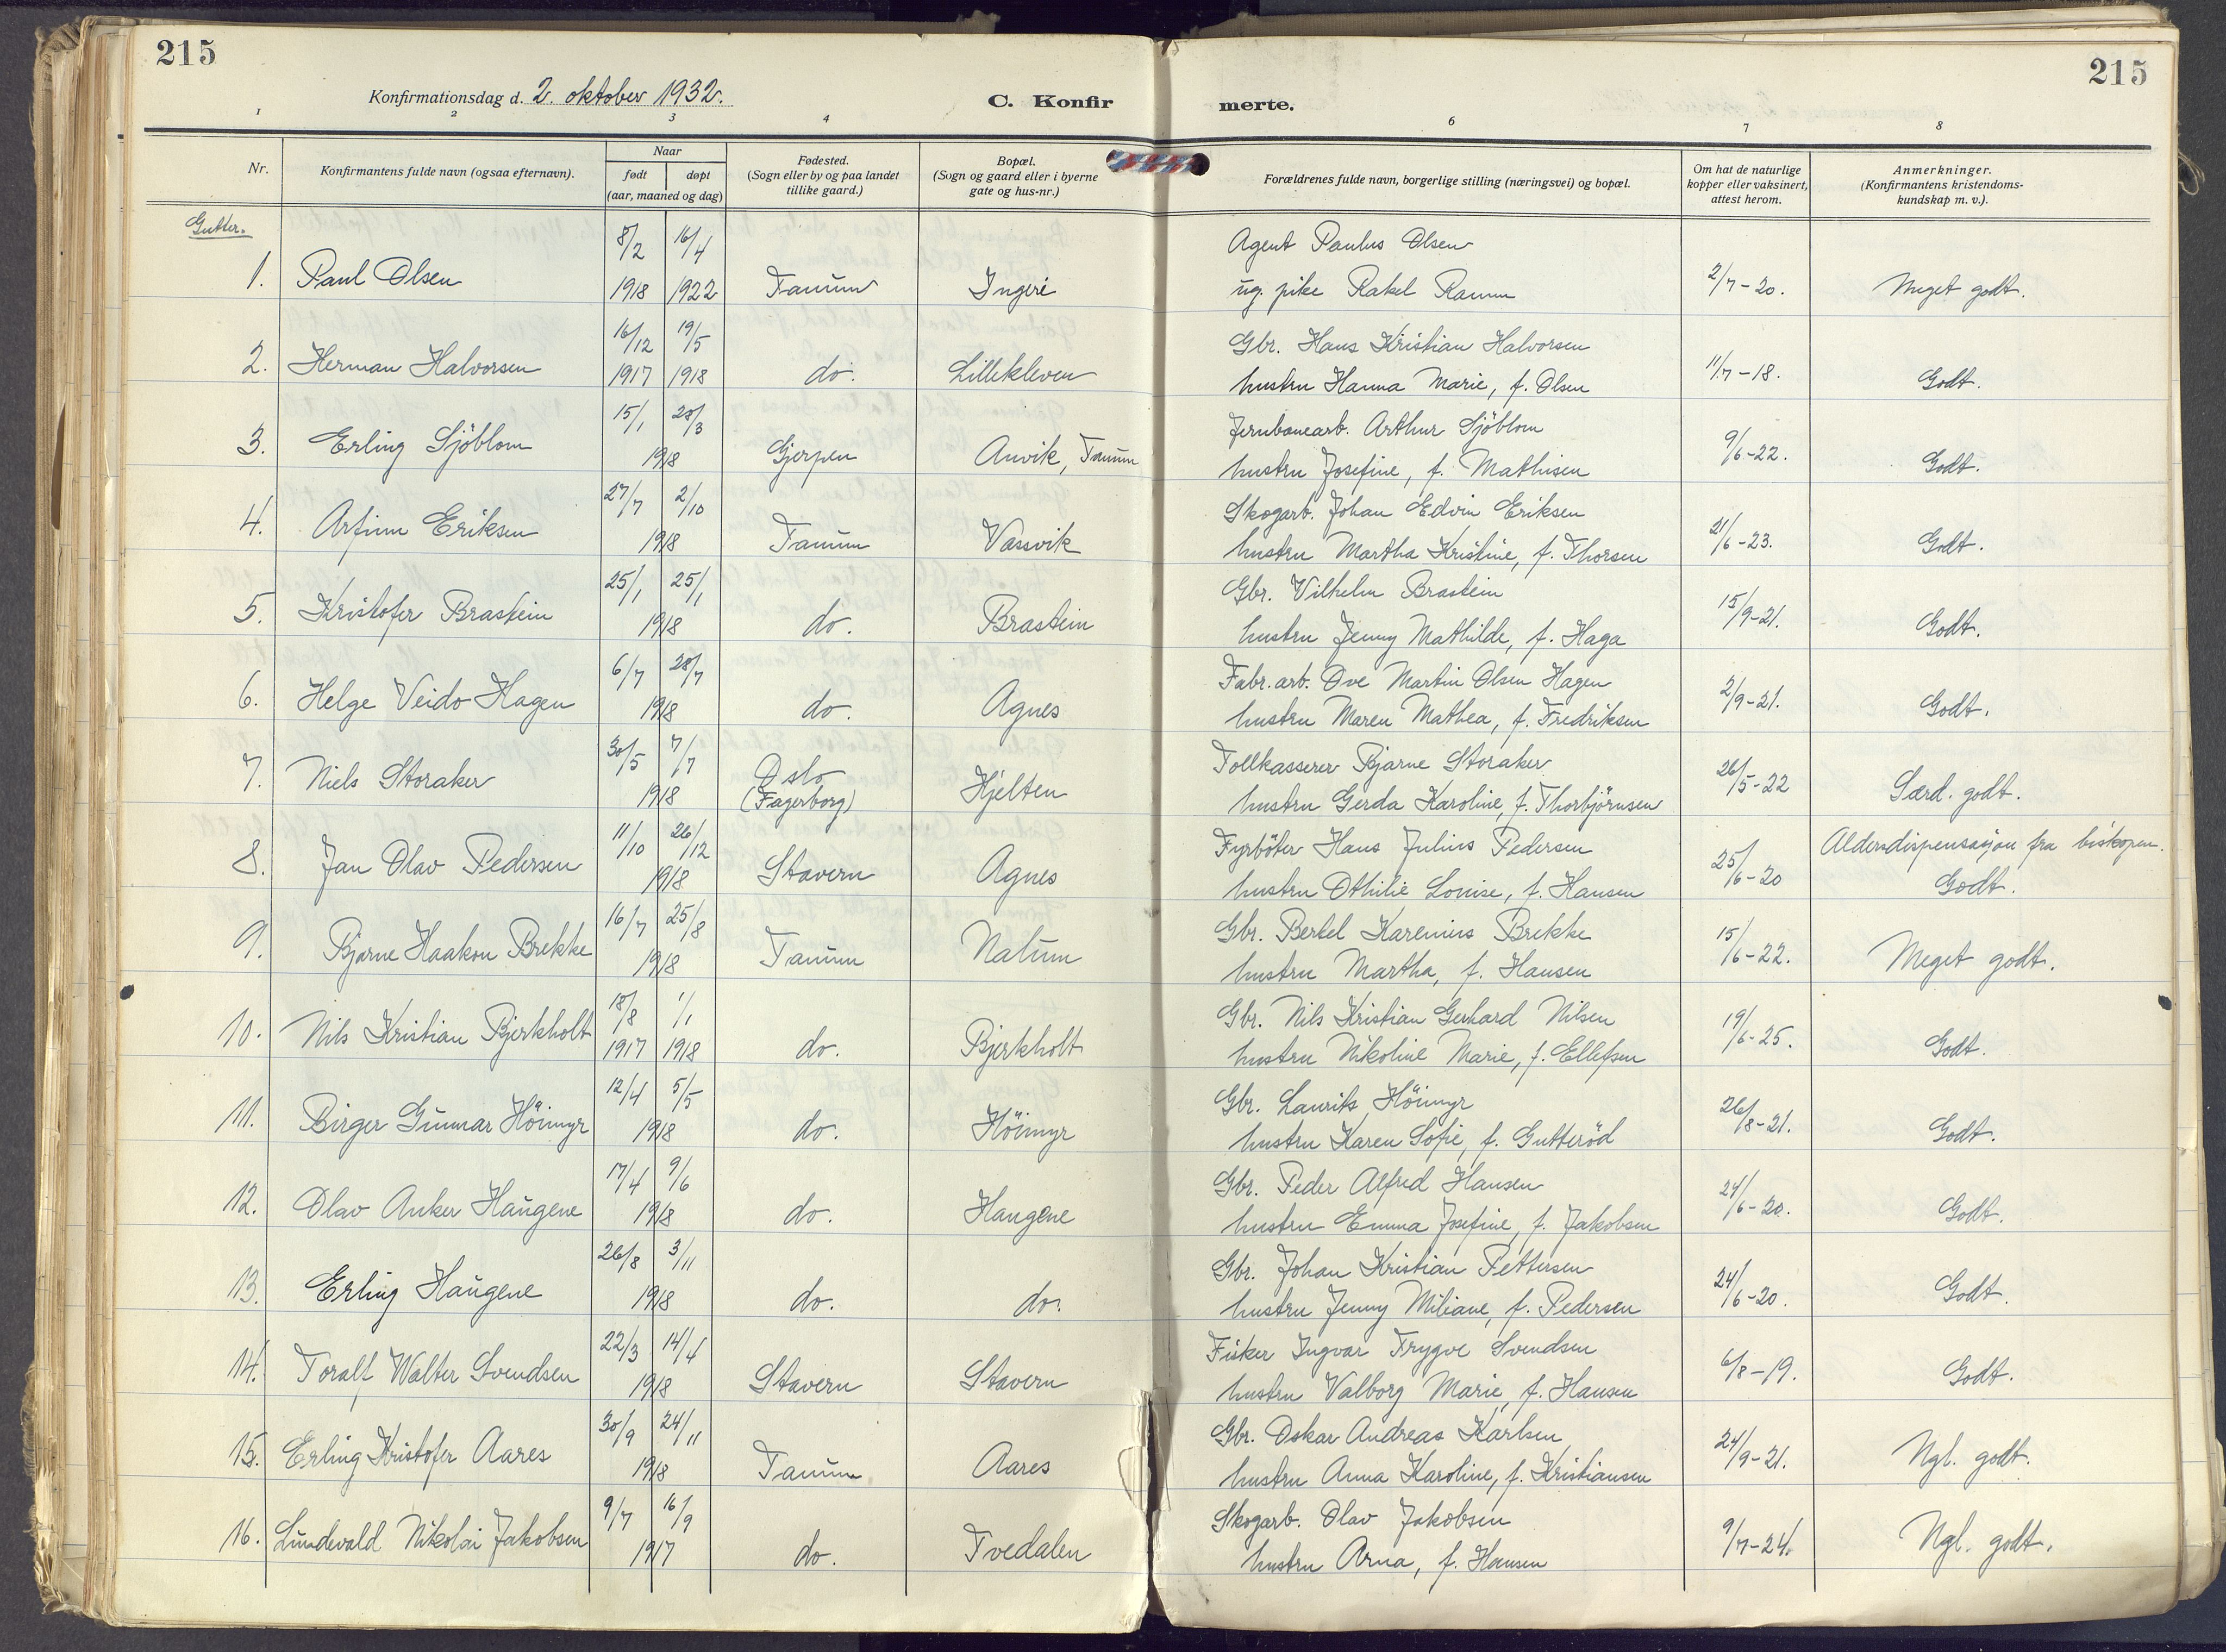 215
215
Konfirmationsdag d. 2. oktober 1932.
C. Konfir
merte.
1 2 3 4 6 7 8
Nr.
Konfirmantens fulde navn (ogsaa efternavn).
Naar
født døpt
(aar, maaned og dag)
Fødested.
(Sogn eller by og paa landet
tillike gaard.)
Bopæl.
(Sogn og gaard eller i byerne
gate og hus-nr.)
Forældrenes fulde navn, borgerlige stilling (næringsvei) og bopæl.
Om hat de naturlige
kopper eller vaksinert,
attest herom.
Anmerkninger.
(Konfirmantens kristendoms-
kundskap m. v.).
Gutter.
8/2 16/4 Agent Paulus Olsen
1. Paul Olsen 1918 1922 Tanum Ingeri ug. pike Rakel Ramm 2/7-20. Meget godt.
16/12 19/5 Gbr. Hans Kristian Halvorsen
2. Herman Halvorsen 1917 1918 do. Lillekleven hustru Hanna Marie, f. Olsen 11/7-18. Godt.
15/1 28/3 Jernbanearb. Arthur Sjöblom
3. Erling Sjöblom 1918 Gjerpen Anvik, Tanum hustru Josefine, f. Mathisen 9/6-22. Godt.
27/7 2/10 Skogarb. Johan Edvin Eriksen
4. Arfinn Eriksen 1918 Tanum Vassvik hustru Martha Kristine, f. Thorsen 21/6-23. Godt.
25/1 25/1 Gbr. Vilhelm Brastein
5. Kristofer Brastein 1918 do. Brastein hustru Jenny Mathilde, f. Haga 15/9-21. Godt.
6/7 28/7 Fabr.arb. Ove Martin Olsen Hagen
6. Helge Veido Hagen 1918 do. Agnes hustru Maren Mathea, f. Fredriksen 2/9-21. Godt.
30/5 7/7 Tollkasserer Bjarne Storaker
7. Niels Storaker 1918 Oslo (Fagerborg) Hjelten hustru Gerda Karoline, f. Thorbjörnsen 26/5-22 Særd. godt.
11/10 26/12 Fyrböter Hans Julius Pedersen Aldersdispensasjon fra biskopen.
8. Jan Olav Pedersen 1918 Stavern Agnes hustru Othilie Louise, f. Hansen 25/6-20 Godt.
16/7 25/8 Gbr. Bertel Karenius Brekke
9. Bjarne Haakon Brekke 1918 Tanum Nalum hustru Martha, f. Hansen 15/6-22. Meget godt.
18/8 1/1 Gbr. Nils Kristian Gerhard Nilsen
10. Nils Kristian Bjerkholt 1917 1918 do. Bjerkholt hustru Nikoline Marie, f. Ellefsen 19/6-25. Godt.
12/4 5/5 Gbr. Laurits Höimyr
11. Birger Gunnar Höimyr 1918 do. Höimyr hustru Karen Sofie, f. Gutteröd 26/8-21. Godt.
17/4 9/6 Gbr. Peder Alfred Hansen
12. Olav Anker Haugene 1918 do. Haugene hustru Emma Josefine, f. Jakobsen 24/6-20. Godt.
26/8 3/11 Gbr. Johan Kristian Pettersen
13. Erling Haugene 1918 do. do. hustru Jenny Miliane, f. Pedersen 24/6-20. Godt.
22/3 14/4 Fisker Ingvar Trygve Svendsen
14. Toralf Walter Svendsen 1918 Stavern Stavern hustru Valborg Marie, f. Hansen 6/8-19. Godt.
30/9 24/11 Gbr. Oskar Andreas Karlsen
15. Erling Kristofer Aares 1918 Tanum Aares hustru Anna Karoline, f. Kristiansen 24/9-21. Ngl. godt.
9/7 16/9 Skogarb. Olav Jakobsen
16. Lundevald Nikolai Jakobsen 1917 do. Tvedalen hustru Arna, f. Hansen 9/7-24. Ngl. godt.